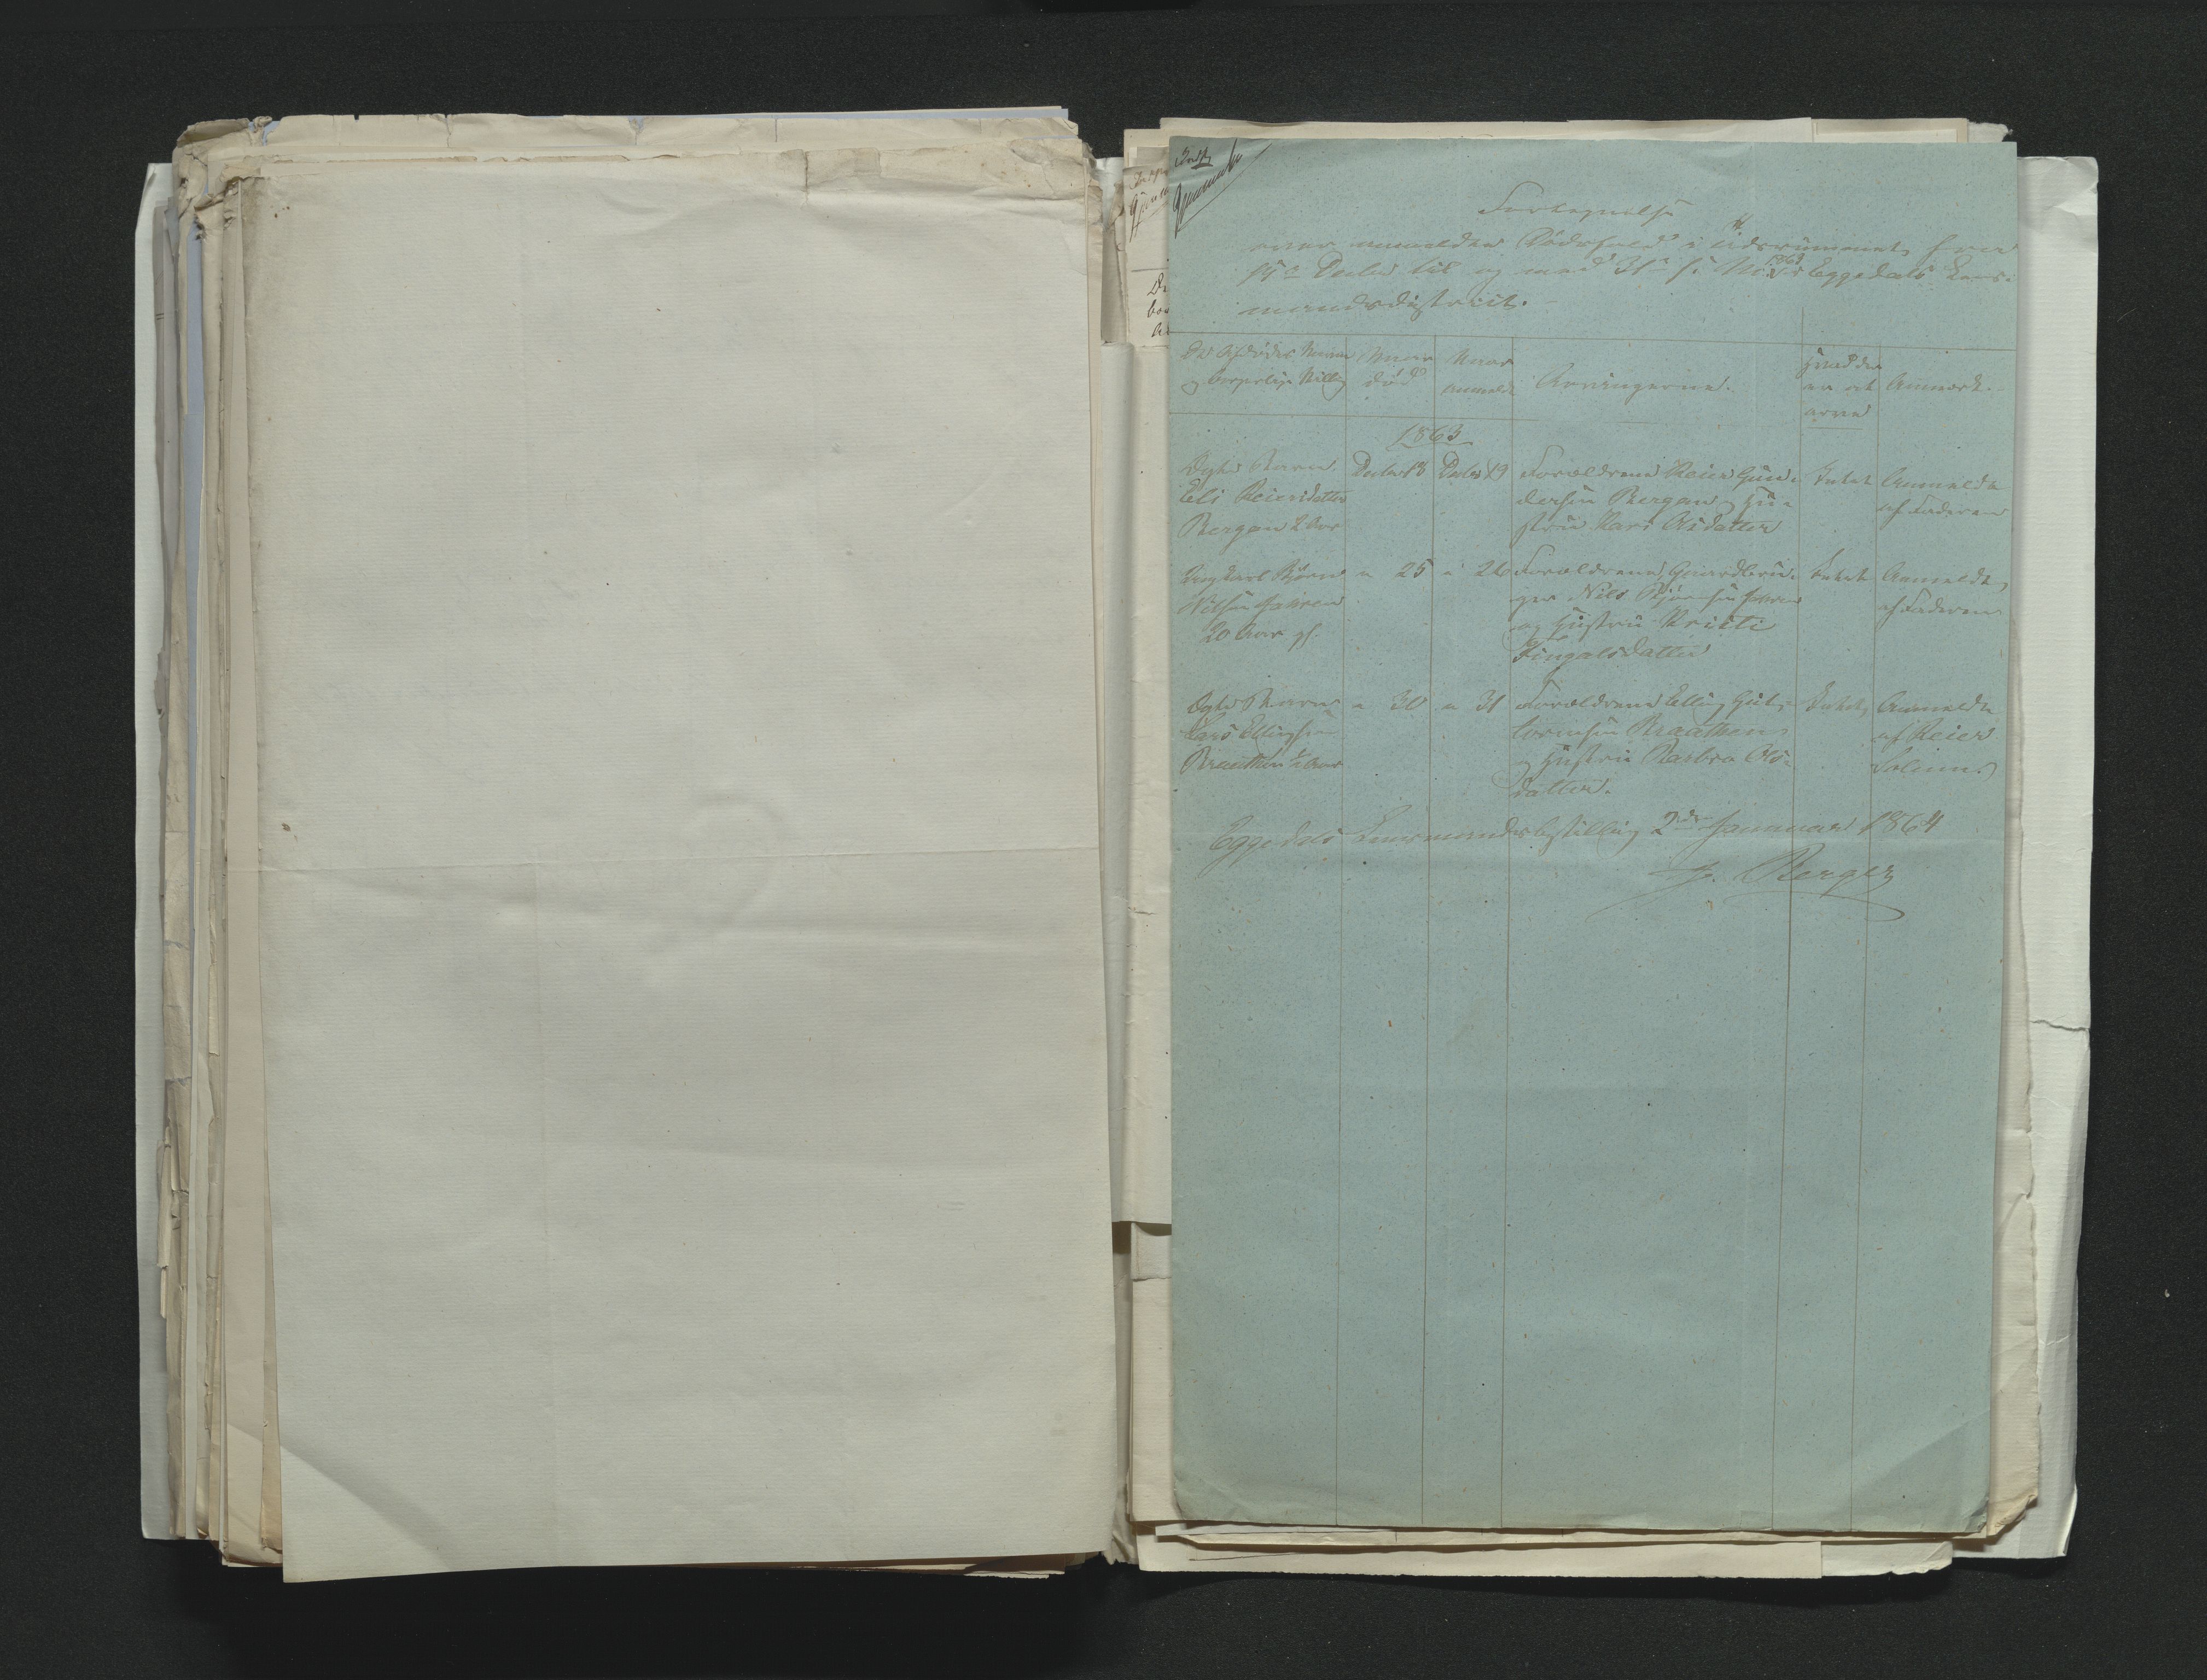 Fortegnelse
over anmeldte Dødsfald i Tidsrummet fra
15de Decbr til og med 31te s. M. 1863 i Eggedals Lens-
mandsdistrict.
De Afdødes Navne
og borgerlige Stilling
Naar
død
Naar
anmeldt
Arvingerne.
Hvad der
er at
arve
Anmærk.
1863
Døbt Barn
Eli Reiersdatter
Bergan 2 Aar
Decbr 18
Decbr 19
Forældrene Reier Gun-
dersen Bergan og Hu-
stru Kari Olsdatter
Intet
Anmeldt
af Faderen
Ungkarl Bjørn
Nilsen
20 Aar gl.
" 25
" 26
Forældrene, Gaardbru-
ger Nils Bjørnsen
og Hustru Kristi
Fingalsdatter
Intet
Anmeldt
af Faderen
Døbt Barn
Lars Ellingsen
Braathen ½ Aar
" 30
" 31
Forældrene Elling Gut-
tormsen Braathen
og Hustru Barbro Ols-
datter.
Intet
Anmeldt
af Reier
Solum.
Eggedals Lensmandsbestilling 2den Januar 1864
Berger